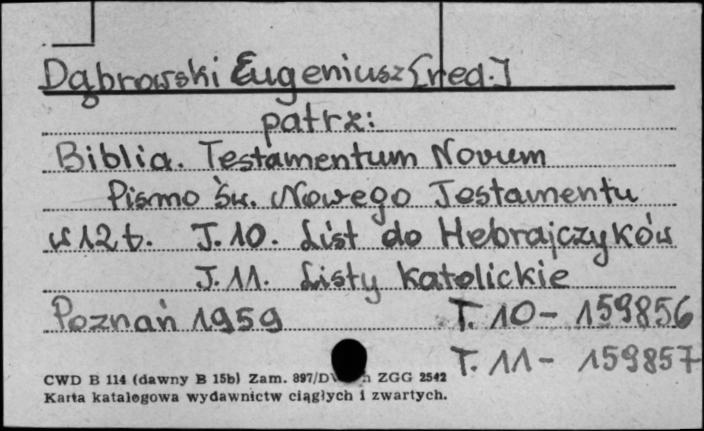 Dąbrowski Eugeniusz [red.]
patrz:
Biblia. Testamentum Novum
Pismo Św. Nowego Testamentu
w 12 t. T. 10. List do Hebrajczyków
T. 11. Listy katolickie
Poznań 1959 T. 10 - 159856
T. 11 - 159857
CWD B 114 (dawny B 15b) Zam. 897/ ZGG 2542
Karta katalogowa wydawnictw ciągłych i zwartych.